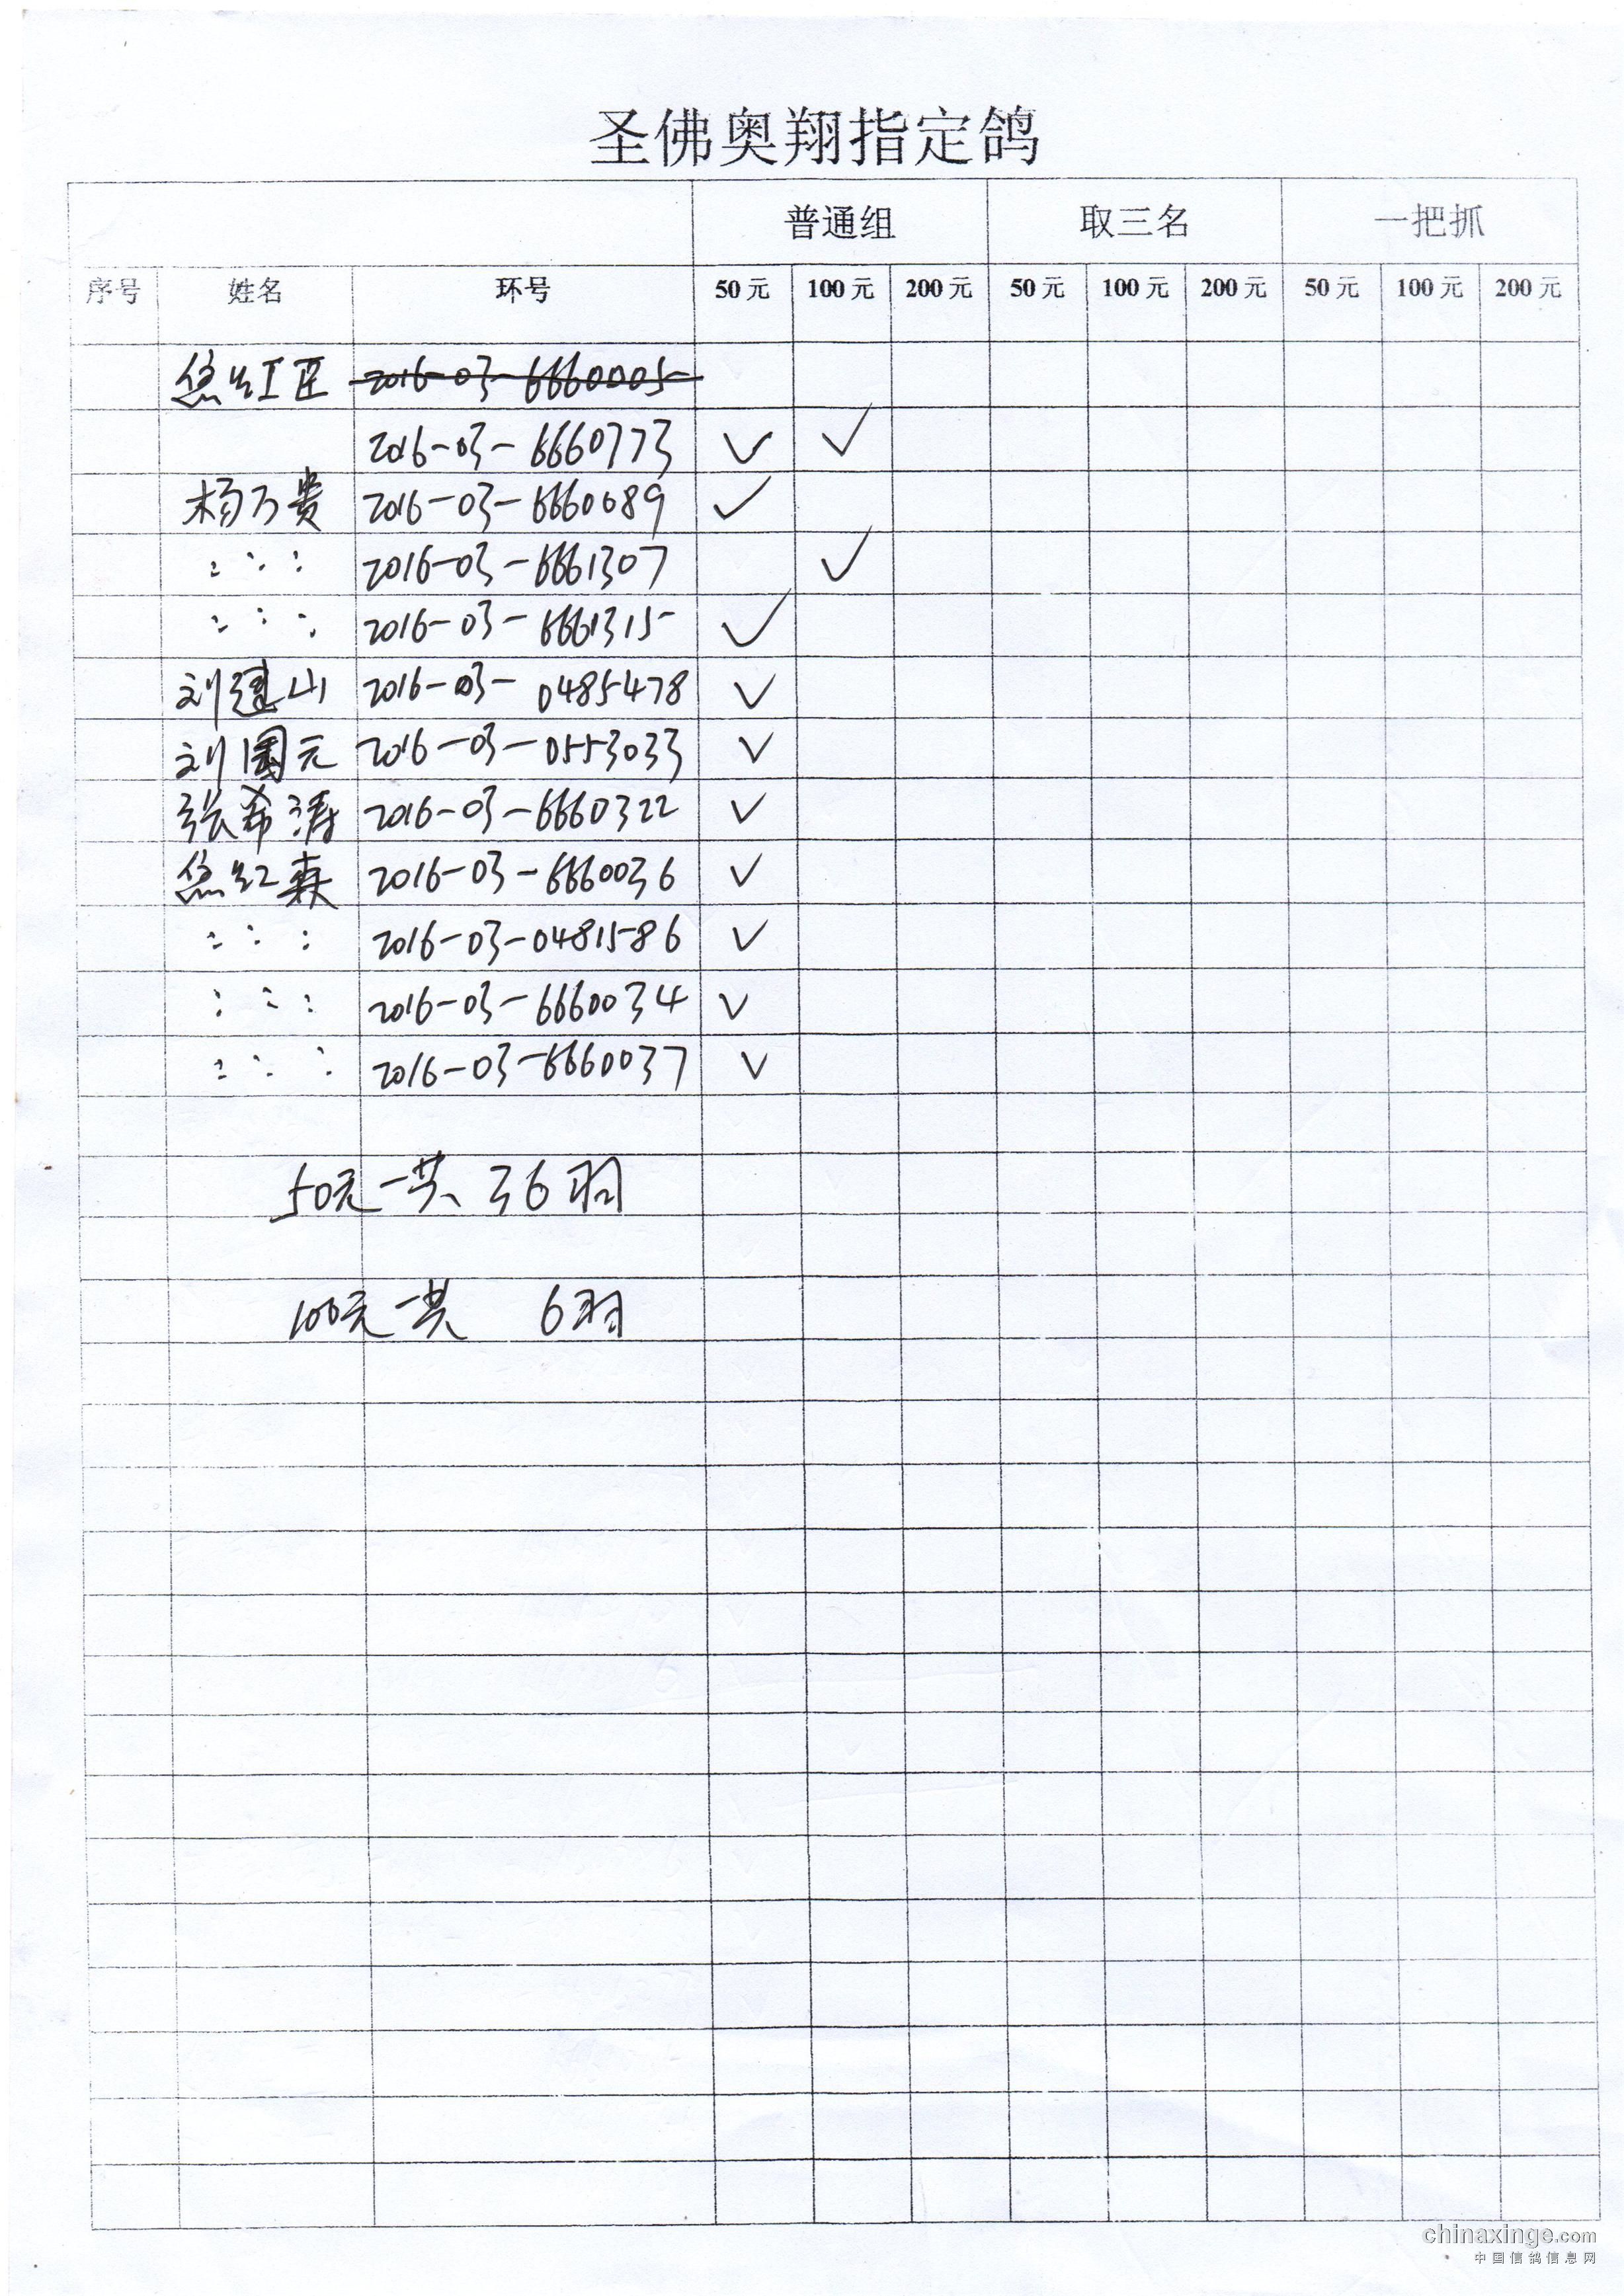 圣佛奥翔指定鸽
普通组 取三名 一把抓
序号 姓名 环号 50元 100元 200元 50元 100元 200元 50元 100元 200元
焦红匠 2016-03-6660005
2016-03-6660773 √ √
杨万贵 2016-03-6660689 √
2016-03-6661307 √
2016-03-6661315 √
刘建山 2016-03-0485478 √
刘国元 2016-03-0553033 √
张希涛 2016-03-6660322 √
焦红森 2016-03-6660036 √
2016-03-0481586 √
2016-03-6660034 √
2016-03-6660037 √
50元一共 36羽
100元一共 6羽
chinaxinge.com
中国信鸽信息网